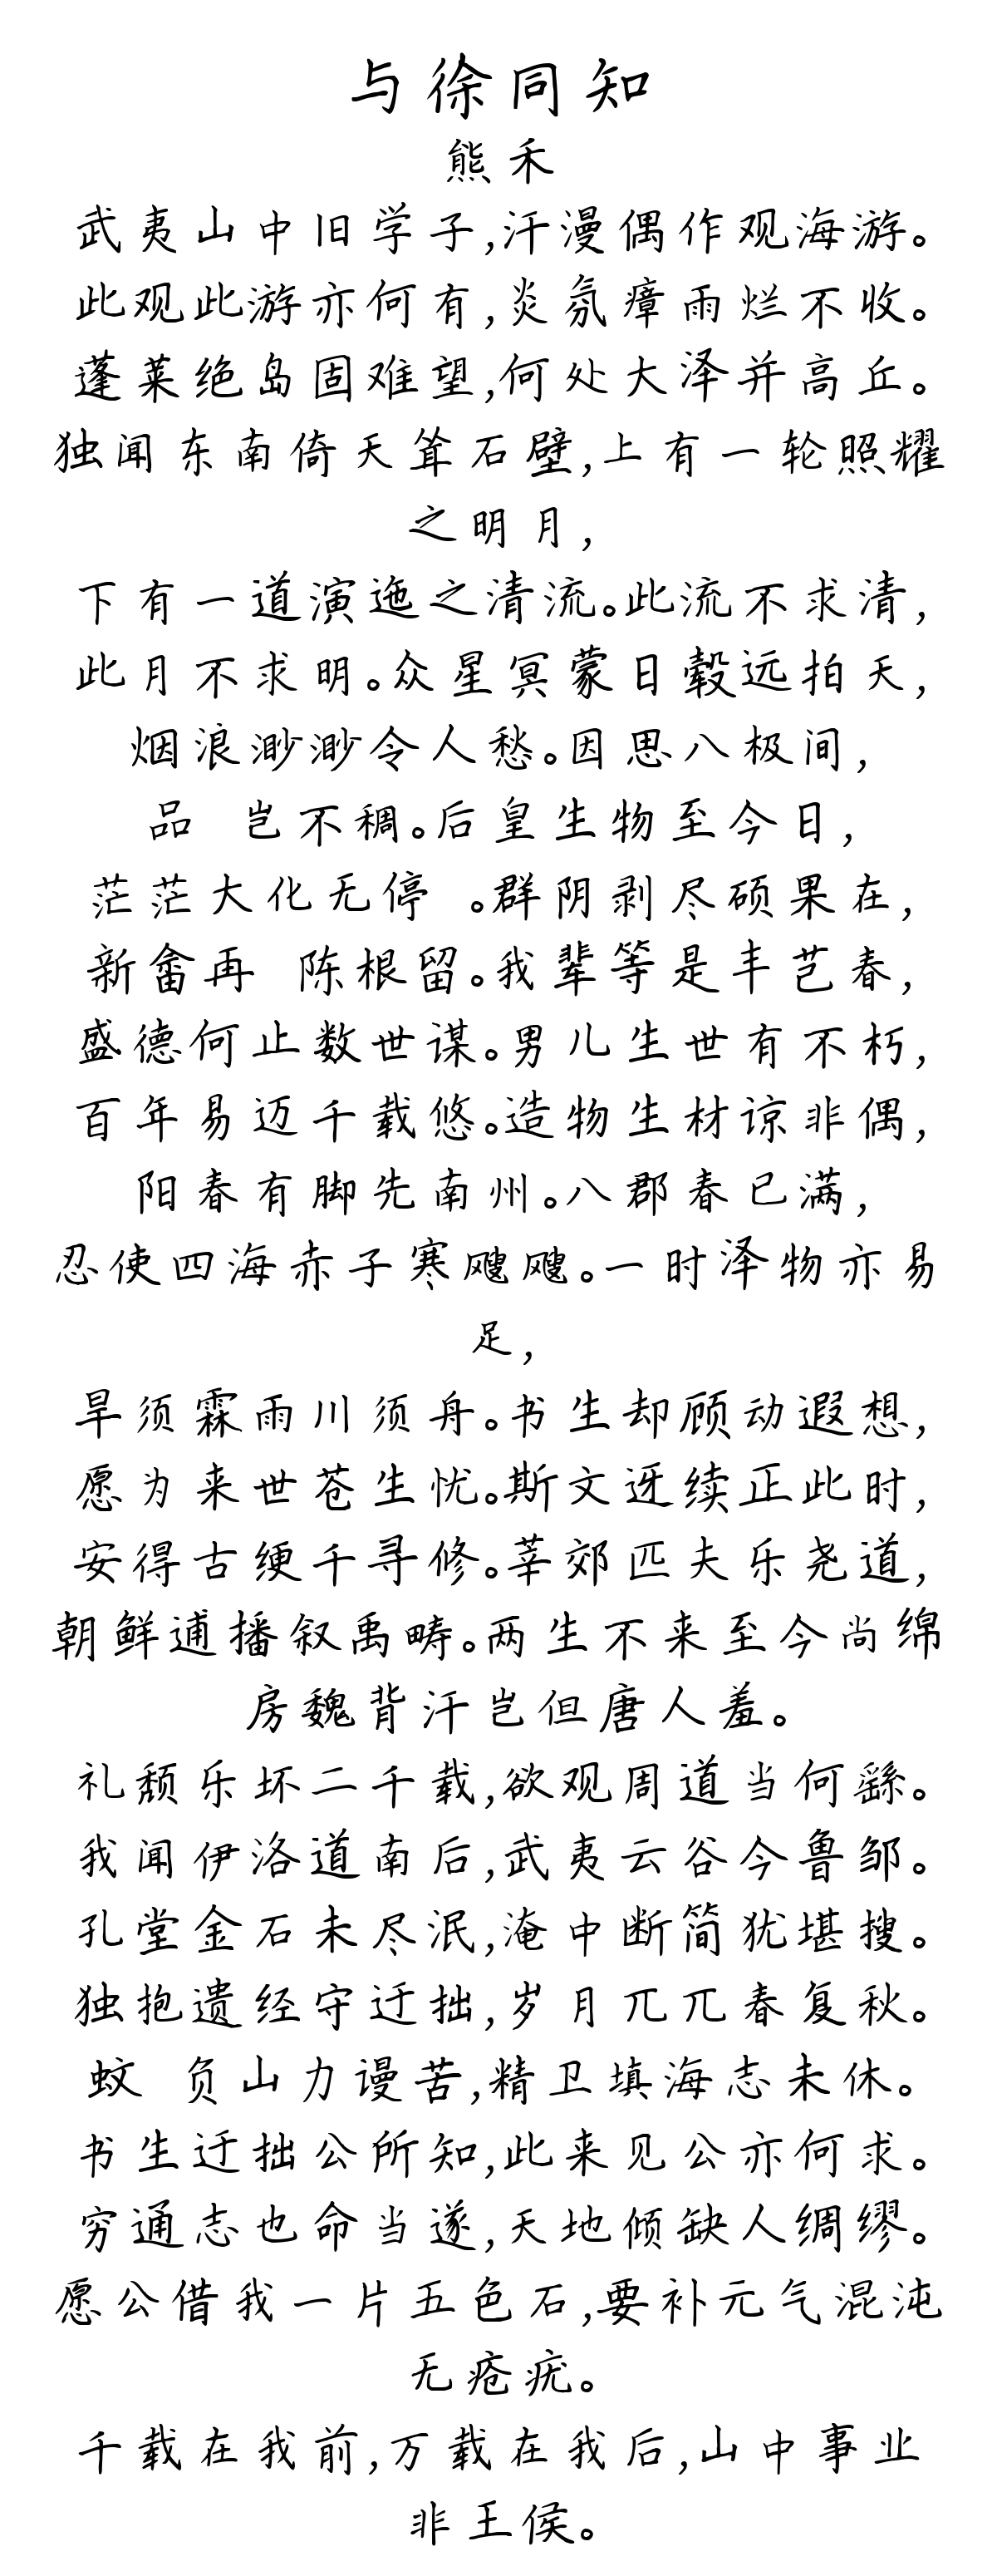 与徐同知
熊禾
武夷山中旧学子,汗漫偶作观海游。
此观此游亦何有,炎氛瘴雨烂不收。
蓬莱绝岛固难望,何处大泽并高丘。
独闻东南倚天耸石壁,上有一轮照耀
之明月,
下有一道演迤之清流。此流不求清,
此月不求明。众星冥蒙日毂远拍天,
烟浪渺渺令人愁。因思八极间,
品 岂不稠。后皇生物至今日,
茫茫大化无停 。群阴剥尽硕果在,
新畬再 陈根留。我辈等是丰芑春,
盛德何止数世谋。男儿生世有不朽,
百年易迈千载悠。造物生材谅非偶,
阳春有脚先南州。八郡春已满,
忍使四海赤子寒飕飕。一时泽物亦易
足,
旱须霖雨川须舟。书生却顾动遐想,
愿为来世苍生忧。斯文迓续正此时,
安得古绠千寻修。莘郊匹夫乐尧道,
朝鲜逋播叙禹畴。两生不来至今尚绵
房魏背汗岂但唐人羞。
礼颓乐坏二千载,欲观周道当何繇。
我闻伊洛道南后,武夷云谷今鲁邹。
孔堂金石未尽泯,淹中断简犹堪搜。
独抱遗经守迂拙,岁月兀兀春复秋。
蚊 负山力谩苦,精卫填海志未休。
书生迂拙公所知,此来见公亦何求。
穷通志也命当遂,天地倾缺人绸缪。
愿公借我一片五色石,要补元气混沌
无疮疣。
千载在我前,万载在我后,山中事业
非王侯。